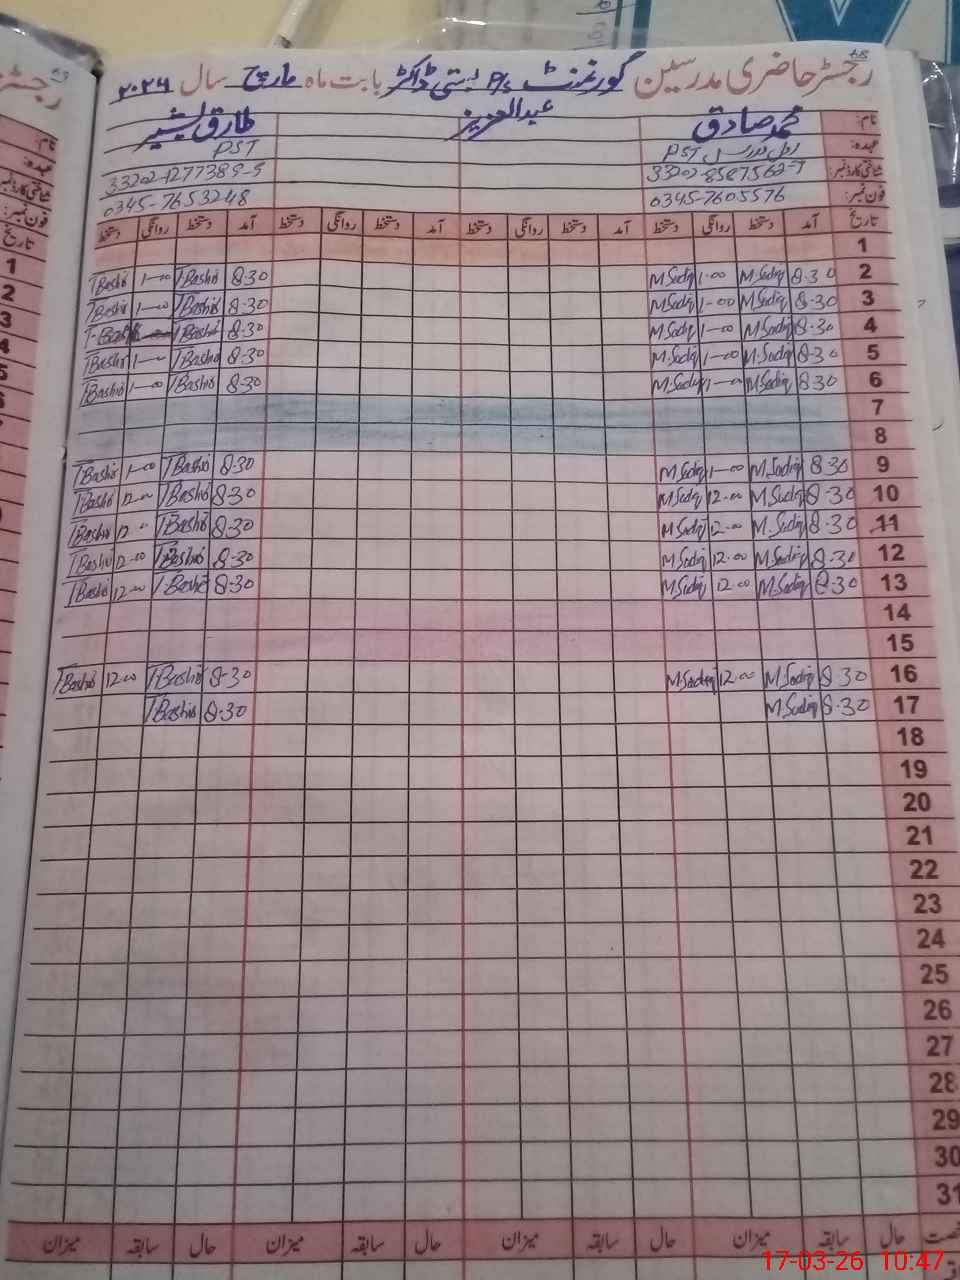 رجسٹر حاضری مدرسین گورنمنٹ P/s بستی ڈاکٹر بابت ماہ مارچ سال ۲۰۲۶
عبدالعزیز
نام: محمد صادق طارق بشیر
عہدہ: PST PST
شناختی کارڈ نمبر: 33202-8587562-7 33202-1277389-5
فون نمبر: 0345-7605576 0345-7653248
تاریخ آمد دستخط روانگی دستخط آمد دستخط روانگی دستخط آمد دستخط روانگی دستخط آمد دستخط روانگی دستخط
1
2 8-30 M.Sadiq 1-00 M.Sadiq 8-30 TBashir 1-00 TBashir
3 8-30 M.Sadiq 1-00 M.Sadiq 8-30 TBashir 1-00 TBashir
4 8-30 M.Sadiq 1-00 M.Sadiq 8-30 TBashir T-Bashir
5 8-30 M.Sadiq 1-00 M.Sadiq 8-30 TBashir 1-00 TBashir
6 8-30 M.Sadiq 1-00 M.Sadiq 8-30 TBashir 1-00 TBashir
7
8
9 8-30 M.Sadiq 1-00 M.Sadiq 8-30 TBashir 1-00 TBashir
10 8-30 M.Sadiq 12-00 M.Sadiq 8-30 TBashir 12-00 TBashir
11 8-30 M.Sadiq 12-00 M.Sadiq 8-30 TBashir 12-00 TBashir
12 8-30 M.Sadiq 12-00 M.Sadiq 8-30 TBashir 12-00 TBashir
13 8-30 M.Sadiq 12-00 M.Sadiq 8-30 TBashir 12-00 TBashir
14
15
16 8-30 M.Sadiq 12-00 M.Sadiq 8-30 TBashir 12-00 TBashir
17 8-30 M.Sadiq 8-30 TBashir
18
19
20
21
22
23
24
25
26
27
28
29
30
31
حال سابقہ میزان حال سابقہ میزان حال سابقہ میزان حال سابقہ میزان
17-03-26 10:47